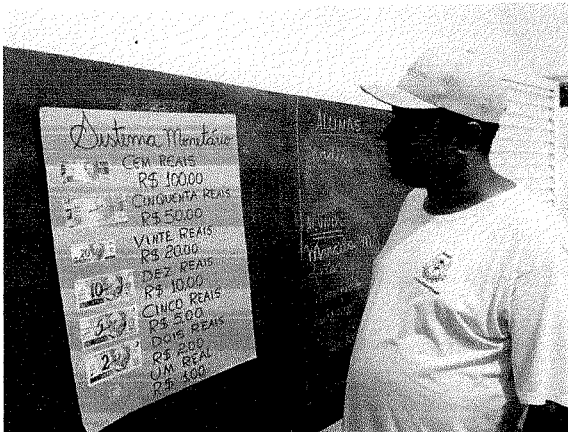 Sistema Monetário
CEM REAIS
R$ 100,00
CINQUENTA REAIS
R$ 50,00
VINTE REAIS
R$ 20,00
DEZ REAIS
R$ 10,00
CINCO REAIS
R$ 5,00
DOIS REAIS
R$ 2,00
UM REAL
R$ 1,00
20
10
5
2
Alunos